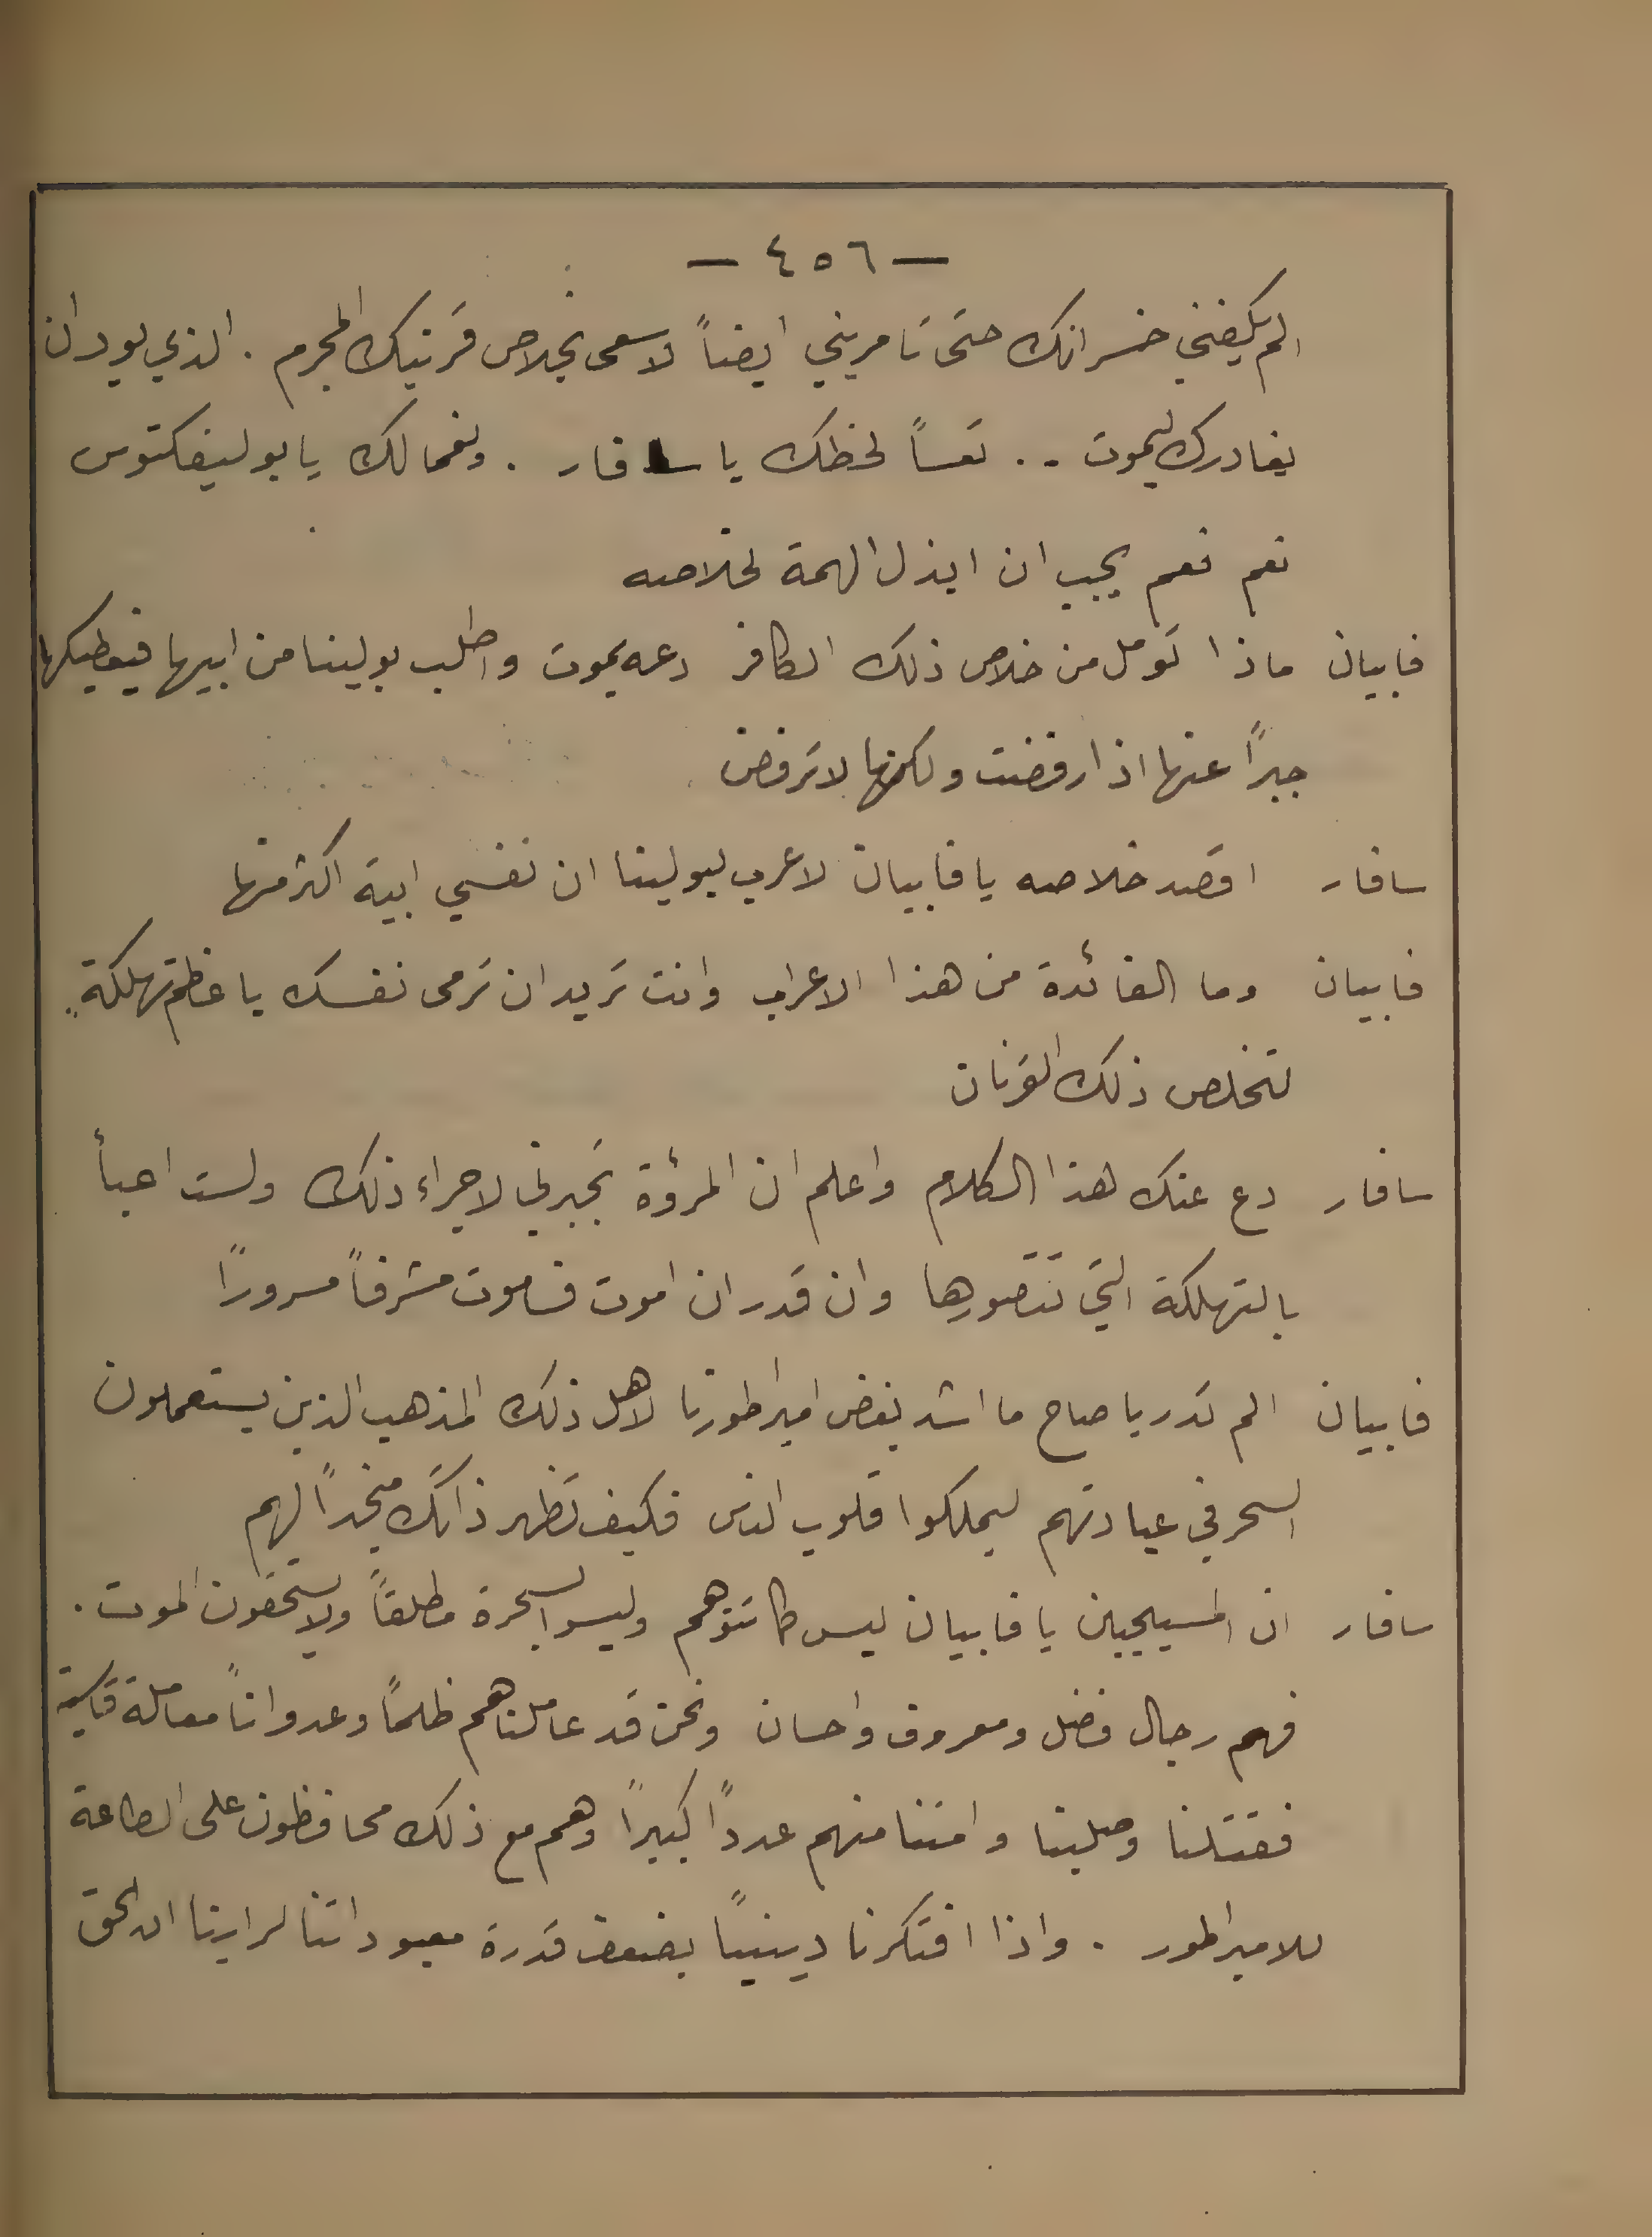 — ٤٥٦ —
الم يكفني خسرانك حتى تامريني ايضاً لاسعى بخلاص قرينك المجرم . الذي يود ان
يغادرك ليموت .. تعساً لحظك يا سافار . ونعما لك يا بوليفكتوس
نعم نعم يجب ان ابذل الهمة لخلاصه
فابيان ماذا تومل من خلاص ذلك الكافر دعه يموت واطلب بولينا من ابيها فيعطيكها
جبراً عنها اذا رفضت ولكنها لا ترفض
سافار اقصد خلاصه يا فابيان لاعرب لبولينا ان نفسي ابية اكثر منها
فابيان وما الفائدة من هذا الاعراب وانت تريد ان ترمى نفسك باعظم تهلكة
لتخلص ذلك القرنان
سافار دع عنك هذا الكلام واعلم ان المرؤة تجبرني لاجراء ذلك ولست اعبأ
بالتهلكة التي تتصورها وان قدر ان اموت فساموت مشرفاً مسروراً
فابيان الم تدر يا صاح ما اشد بغض امبراطورنا لاهل ذلك المذهب الذين يستعملون
السحر في عبادتهم ليملكوا قلوب الناس فكيف تظهر ذاتك منجداً لهم
سافار ان المسيحيين يا فابيان ليس كما تتوهم وليسوا بسحرة مطلقاً ولا يستحقون الموت .
فهم رجال فضل ومعروف واحسان ونحن قد عاملناهم ظلماً وعدواناً معاملة قاسية
فقتلنا وصلبنا وامتنا منهم عدداً كبيراً وهم مع ذلك محافظون على الطاعة
للامبراطور . واذا افتكرنا دينياً بضعف قدرة معبوداتنا لراينا ان الحق